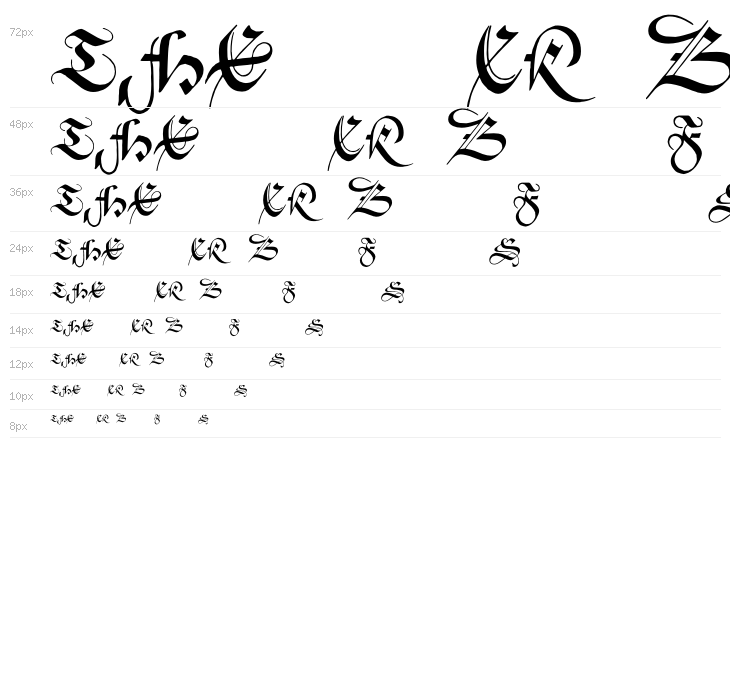 72px THE ER B
48px THE ER B F
36px THE ER B F S
24px THE ER B F S
18px THE ER B F S
14px THE ER B F S
12px THE ER B F S
10px THE ER B F S
8px THE ER B F S